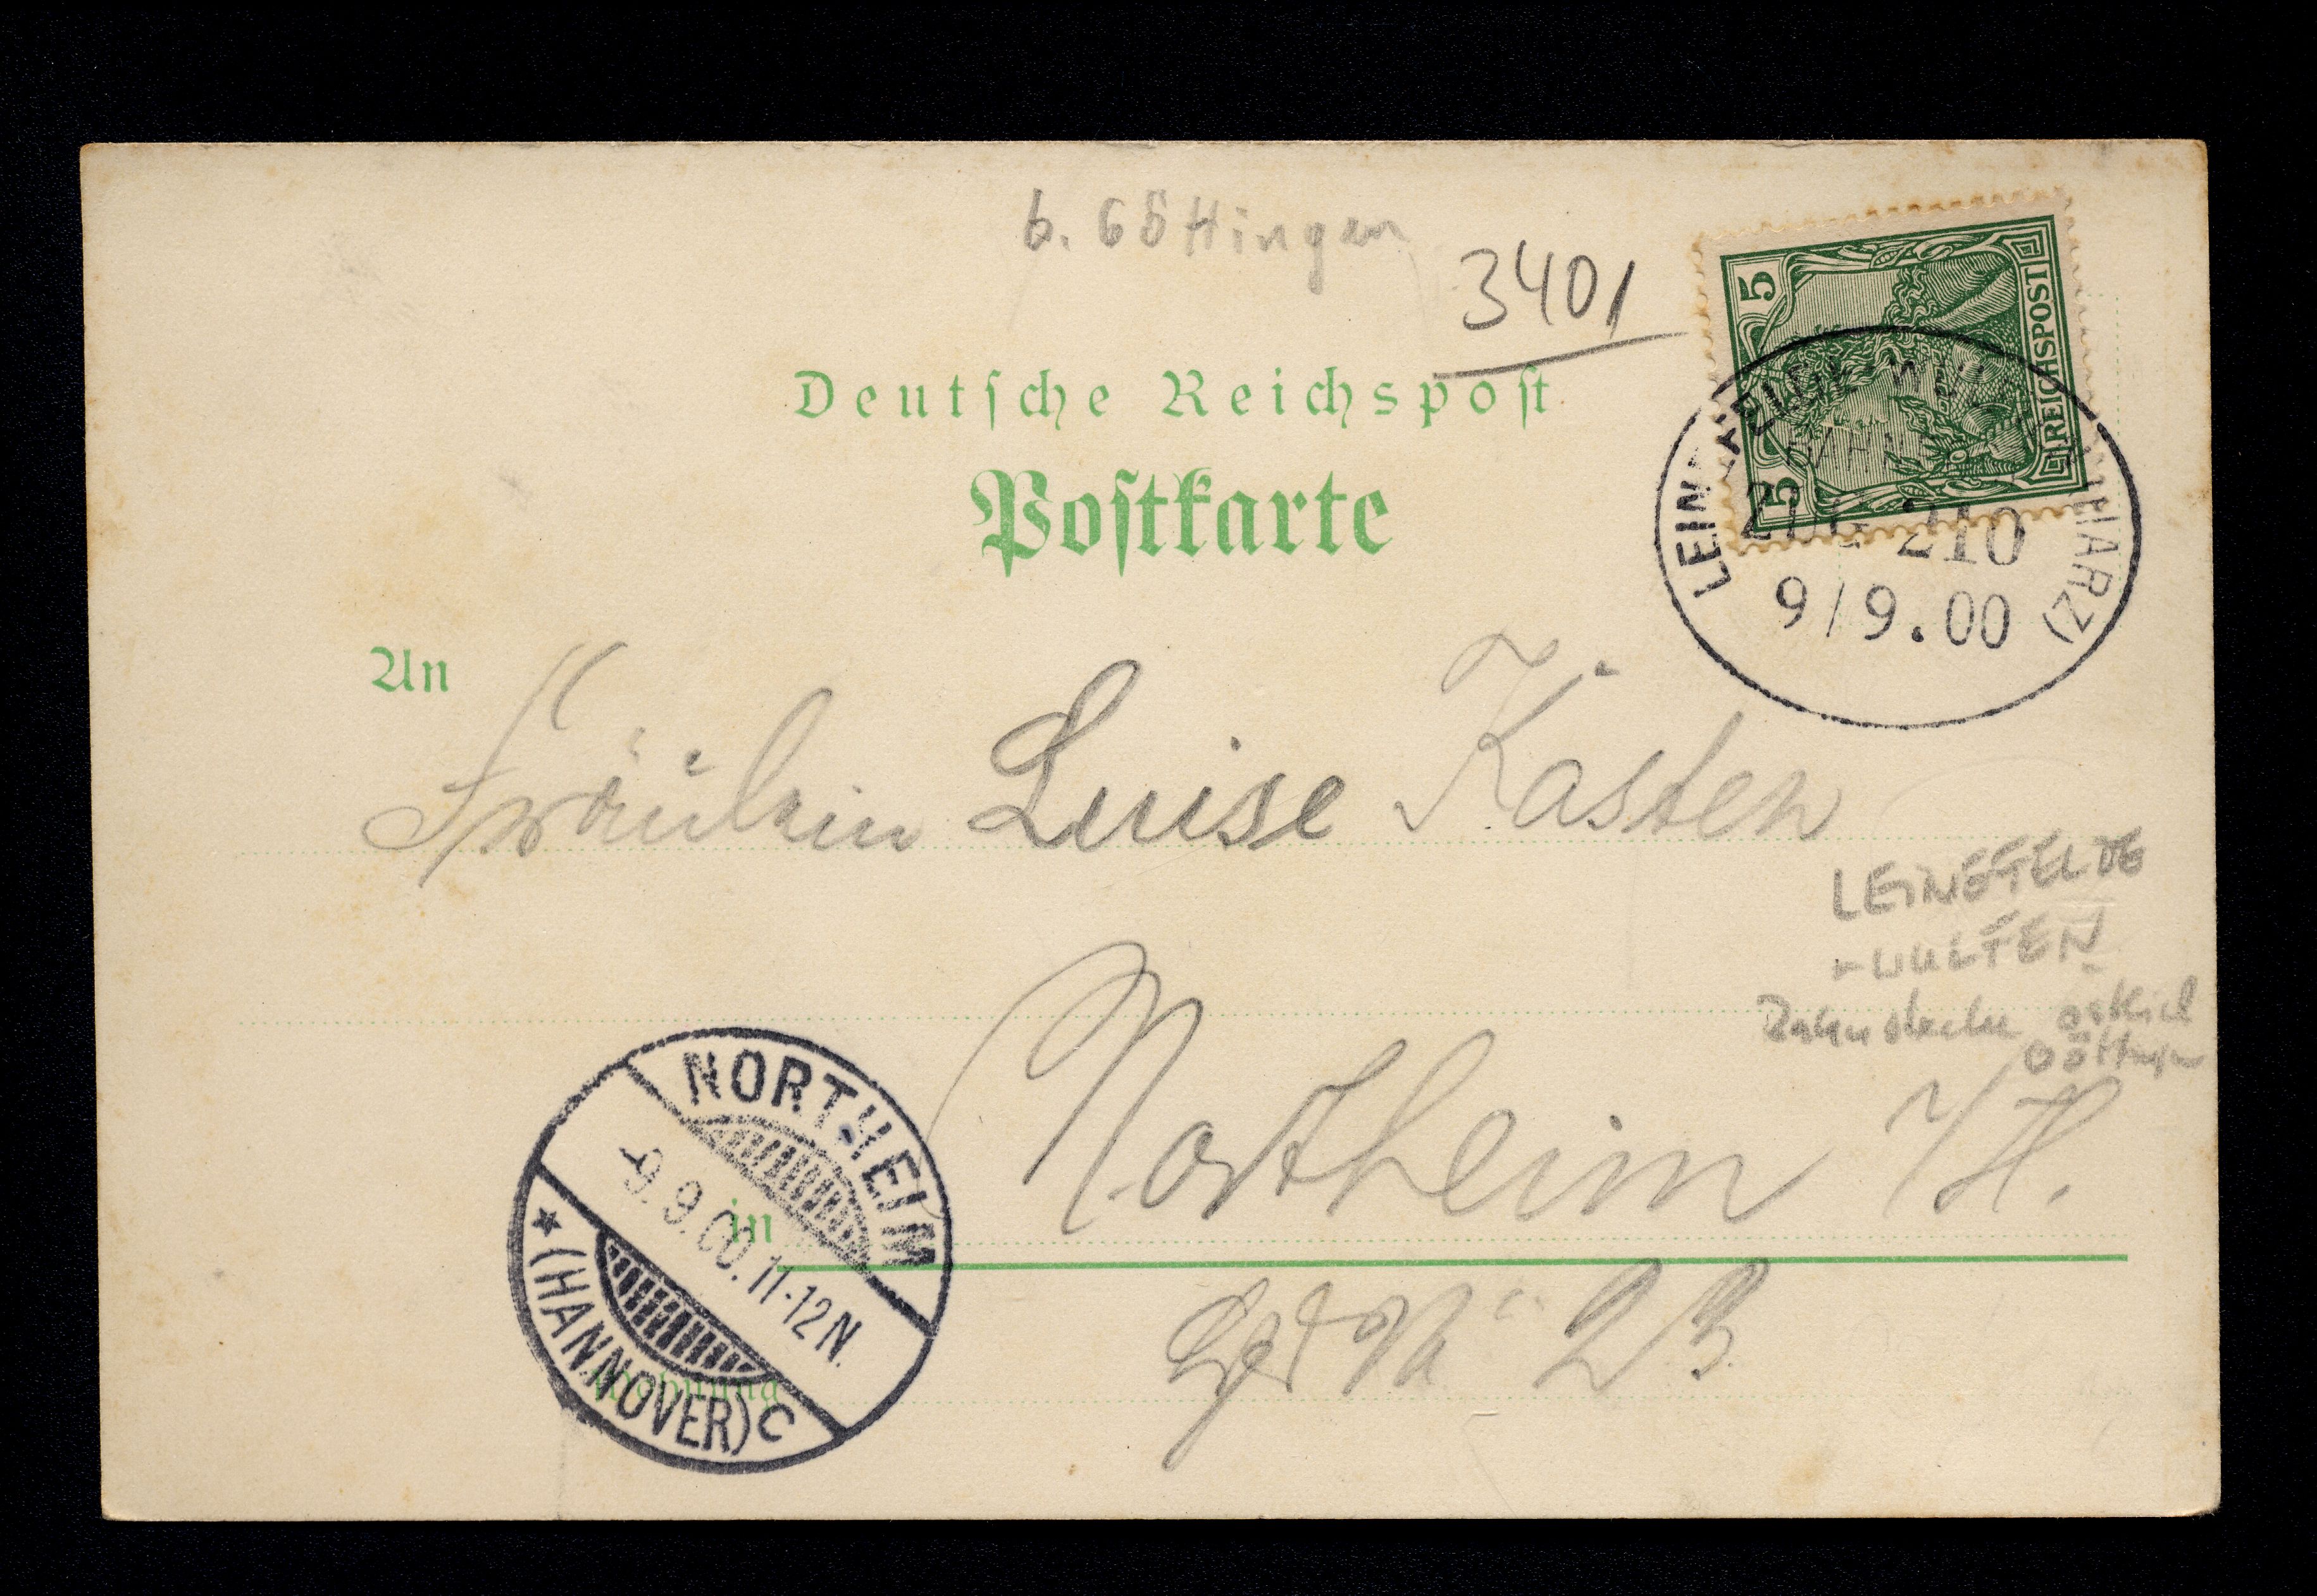 b. Göttingen
3401
5 5
REICHSPOST
Deutsche Reichspost
Postkarte
ZUG 210
9/9.00
HARZ)
An
Fräulein Luise Kasten
LEINEFELDE
-WULFEN
Bahnstrecke östlich
Göttingen
Northeim i/H.
in
NORTHEIM
-9.9.00.11-12N.
★ (HANNOVER) C
Wohnung
23